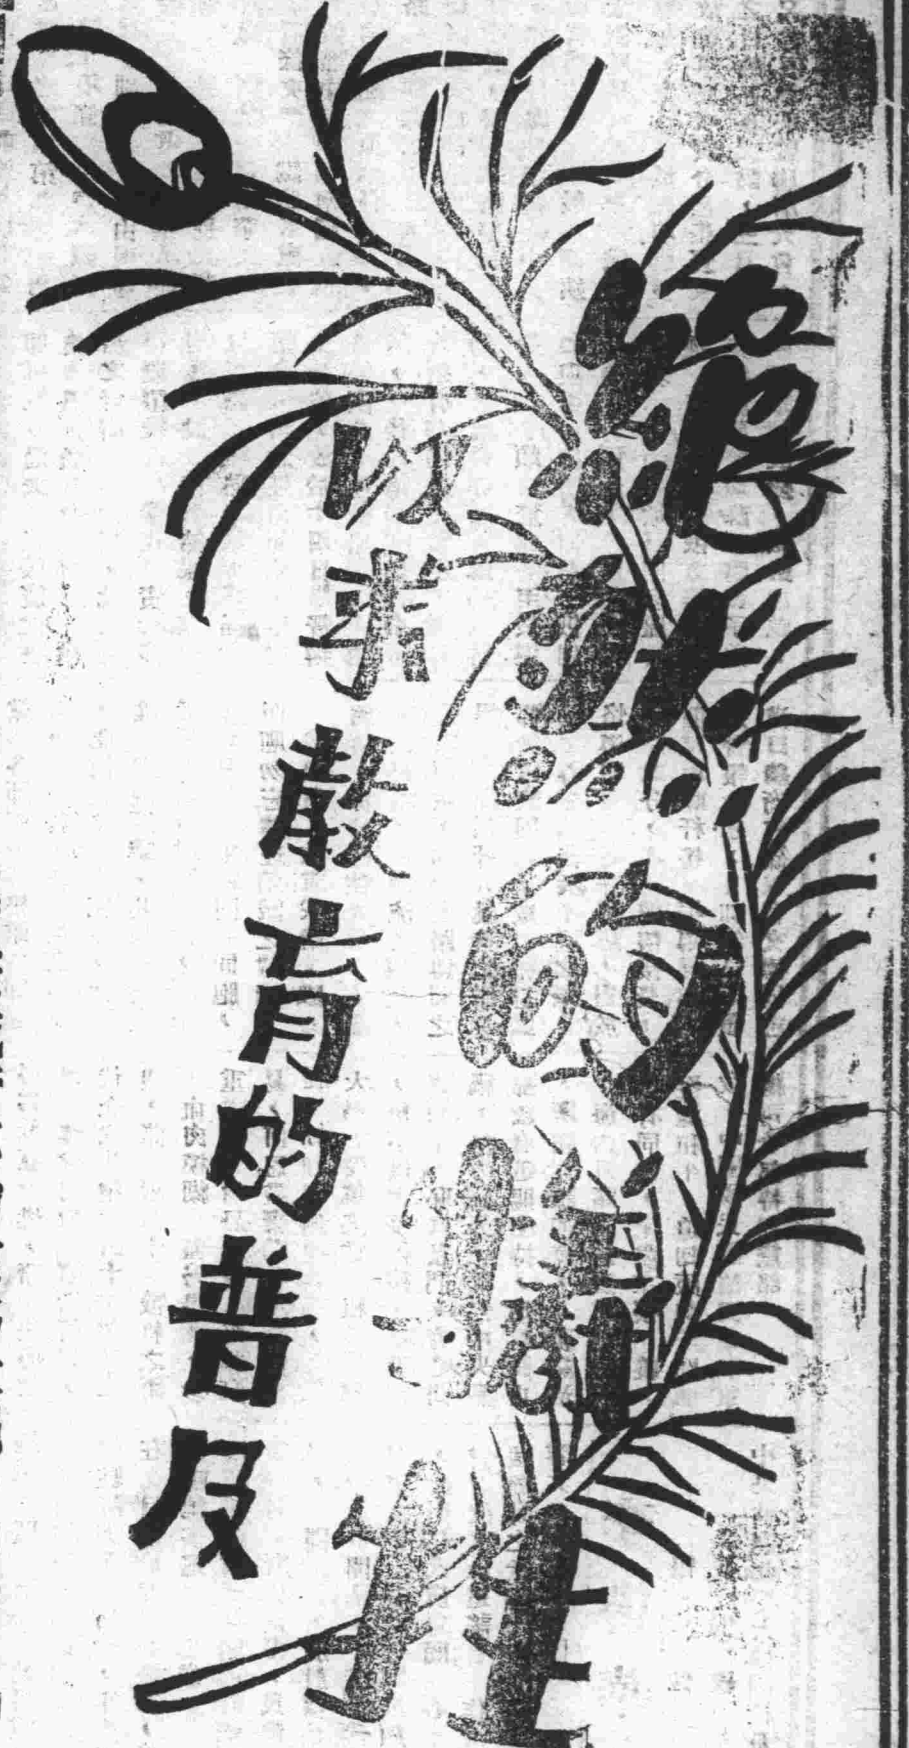 絕大的犧牲
以求教育的普及